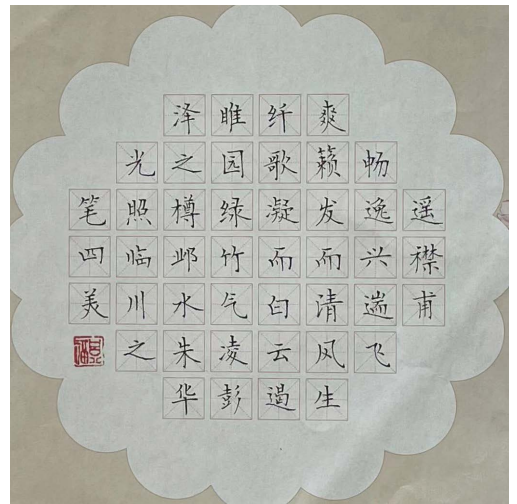 遥襟甫
畅逸兴遄飞
爽籁发而清风生
纤歌凝而白云遏
睢园绿竹气凌彭
泽之樽邺水朱华
光照临川之
笔四美